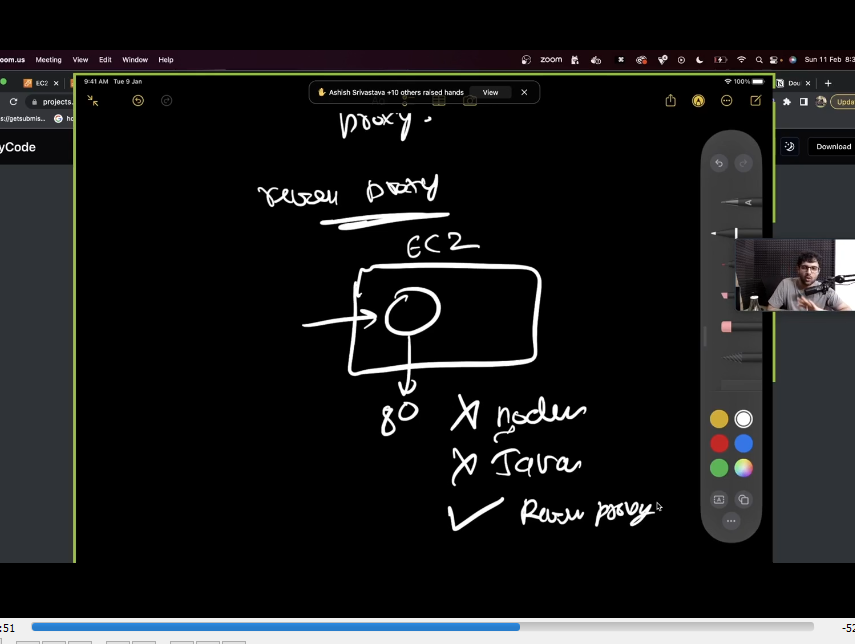 oom.us Meeting View Edit Window Help zoom Sun 11 Feb 8:3
EC2 Dou
projects.
s://getsubmis... ho Upda
9:41 AM Tue 9 Jan 100%
Ashish Srivastava +10 others raised hands View
yCode Download
proxy.
proxy
EC2
80
nodejs
Java
proxy
:51 -52